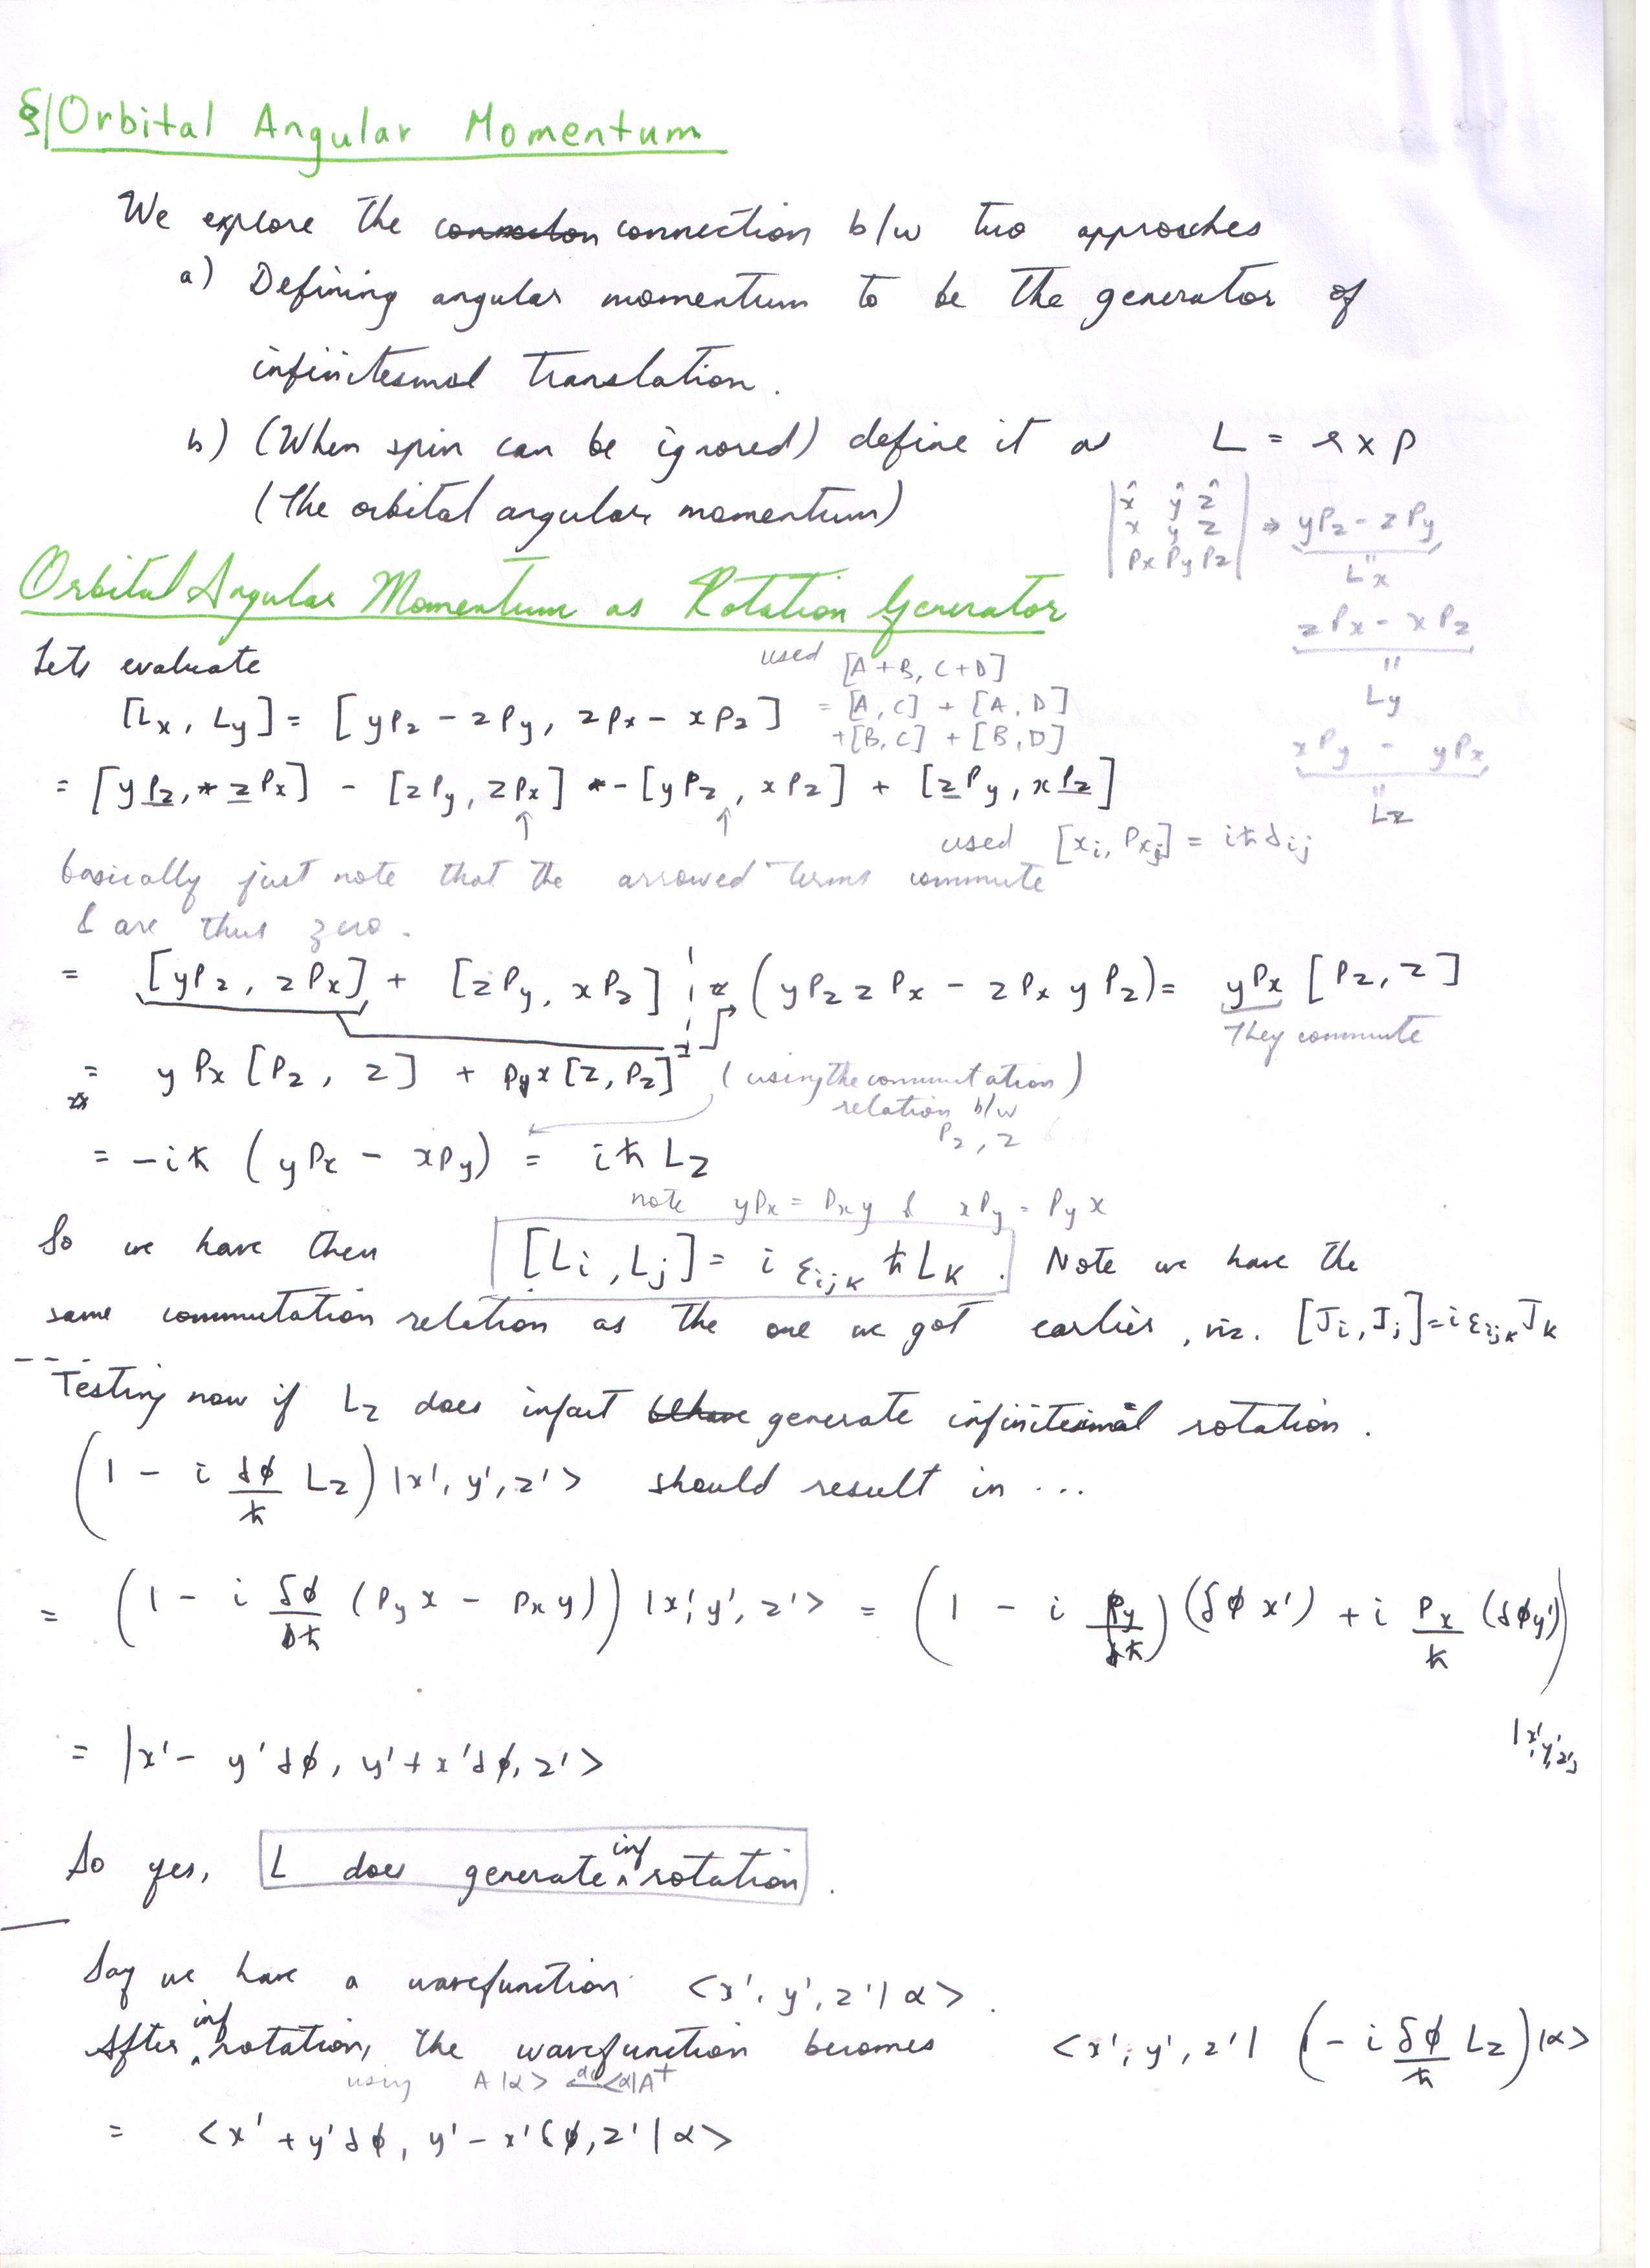 §/ Orbital Angular Momentum
We explore the connection b/w two approaches
a) Defining angular momentum to be the generator of
infinitesmal translation.
b) (When spin can be ignored) define it as L = r x p
(The orbital angular momentum)
|x̂ ŷ ẑ|
|x y z| ⇒ yPz - zPy
|Px Py Pz|
" Lx
zPx - xPz
" Ly
xPy - yPx
" Lz
Orbital Angular Momentum as Rotation Generator
Lets evaluate
used [A+B, C+D]
= [A,C] + [A,D]
+[B,C] + [B,D]
[Lx, Ly] = [yPz - zPy, zPx - xPz]
= [yPz, zPx] - [zPy, zPx] - [yPz, xPz] + [zPy, xPz]
↑ ↑
used [xi, Pxj] = iħδij
basically just note that the arrowed terms commute
& are thus zero.
= [yPz, zPx] + [zPy, xPz] (yPz zPx - zPx yPz) = yPx [Pz, z]
They commute
= yPx [Pz, z] + Pyx [z, Pz] (using the commutation)
relation b/w
Pz, z
= -iħ (yPx - xPy) = iħLz
note yPx = Pxy & xPy = Pyx
So we have then [Li, Lj] = i εijk ħLk. Note we have the
same commutation relation as the one we got earlier, viz. [Ji, Jj] = iεijk Jk
Testing now if Lz does infact generate infinitesimal rotation.
(1 - i δφ/ħ Lz) |x', y', z'> should result in ...
= (1 - i δφ/ħ (Pyx - Pxy)) |x', y', z'> = (1 - i Py/ħ) (δφ x') + i Px/ħ (δφy'))
|x', y', z'>
= |x' - y'δφ, y' + x'δφ, z'>
So yes, L does generate inf rotation.
Say we have a wavefunction <x', y', z'|α>.
After inf rotation, the wavefunction becomes <x', y', z'| (- i δφ/ħ Lz) |α>
using A|α> dc <α|A†
= <x' + y'δφ, y' - x'δφ, z'|α>